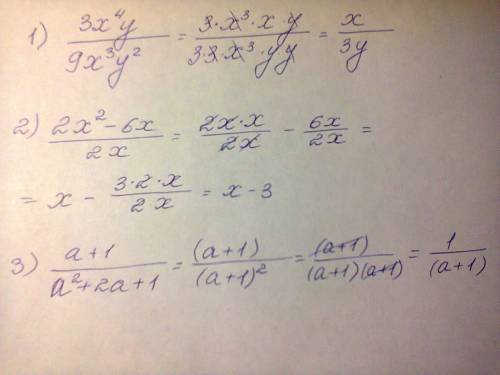 1) 3x⁴y / 9x³y² = 3·x³·x·y / 3·3·x³·y·y = x / 3y
2) 2x²-6x / 2x = 2x·x / 2x - 6x / 2x =
= x - 3·2·x / 2x = x-3
3) a+1 / a²+2a+1 = (a+1) / (a+1)² = (a+1) / (a+1)(a+1) = 1 / (a+1)